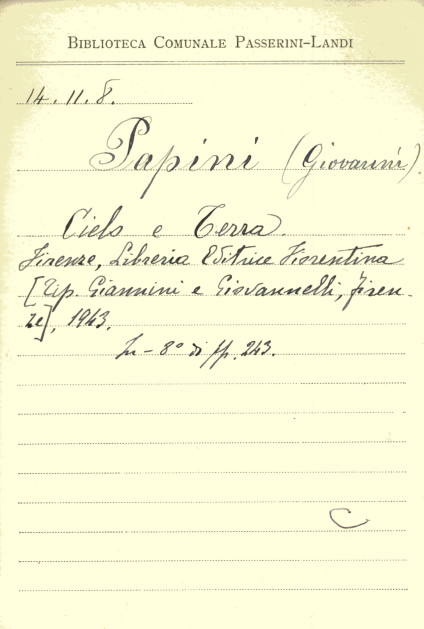 BIBLIOTECA COMUNALE PASSERINI-LANDI
14.11.8.
Papini (Giovanni).
Cielo e Terra.
Firenze, Libreria Editrice Fiorentina
[Tip. Giannini e Giovannelli, Firen-
ze], 1943.
In-8° di pp. 243.
C